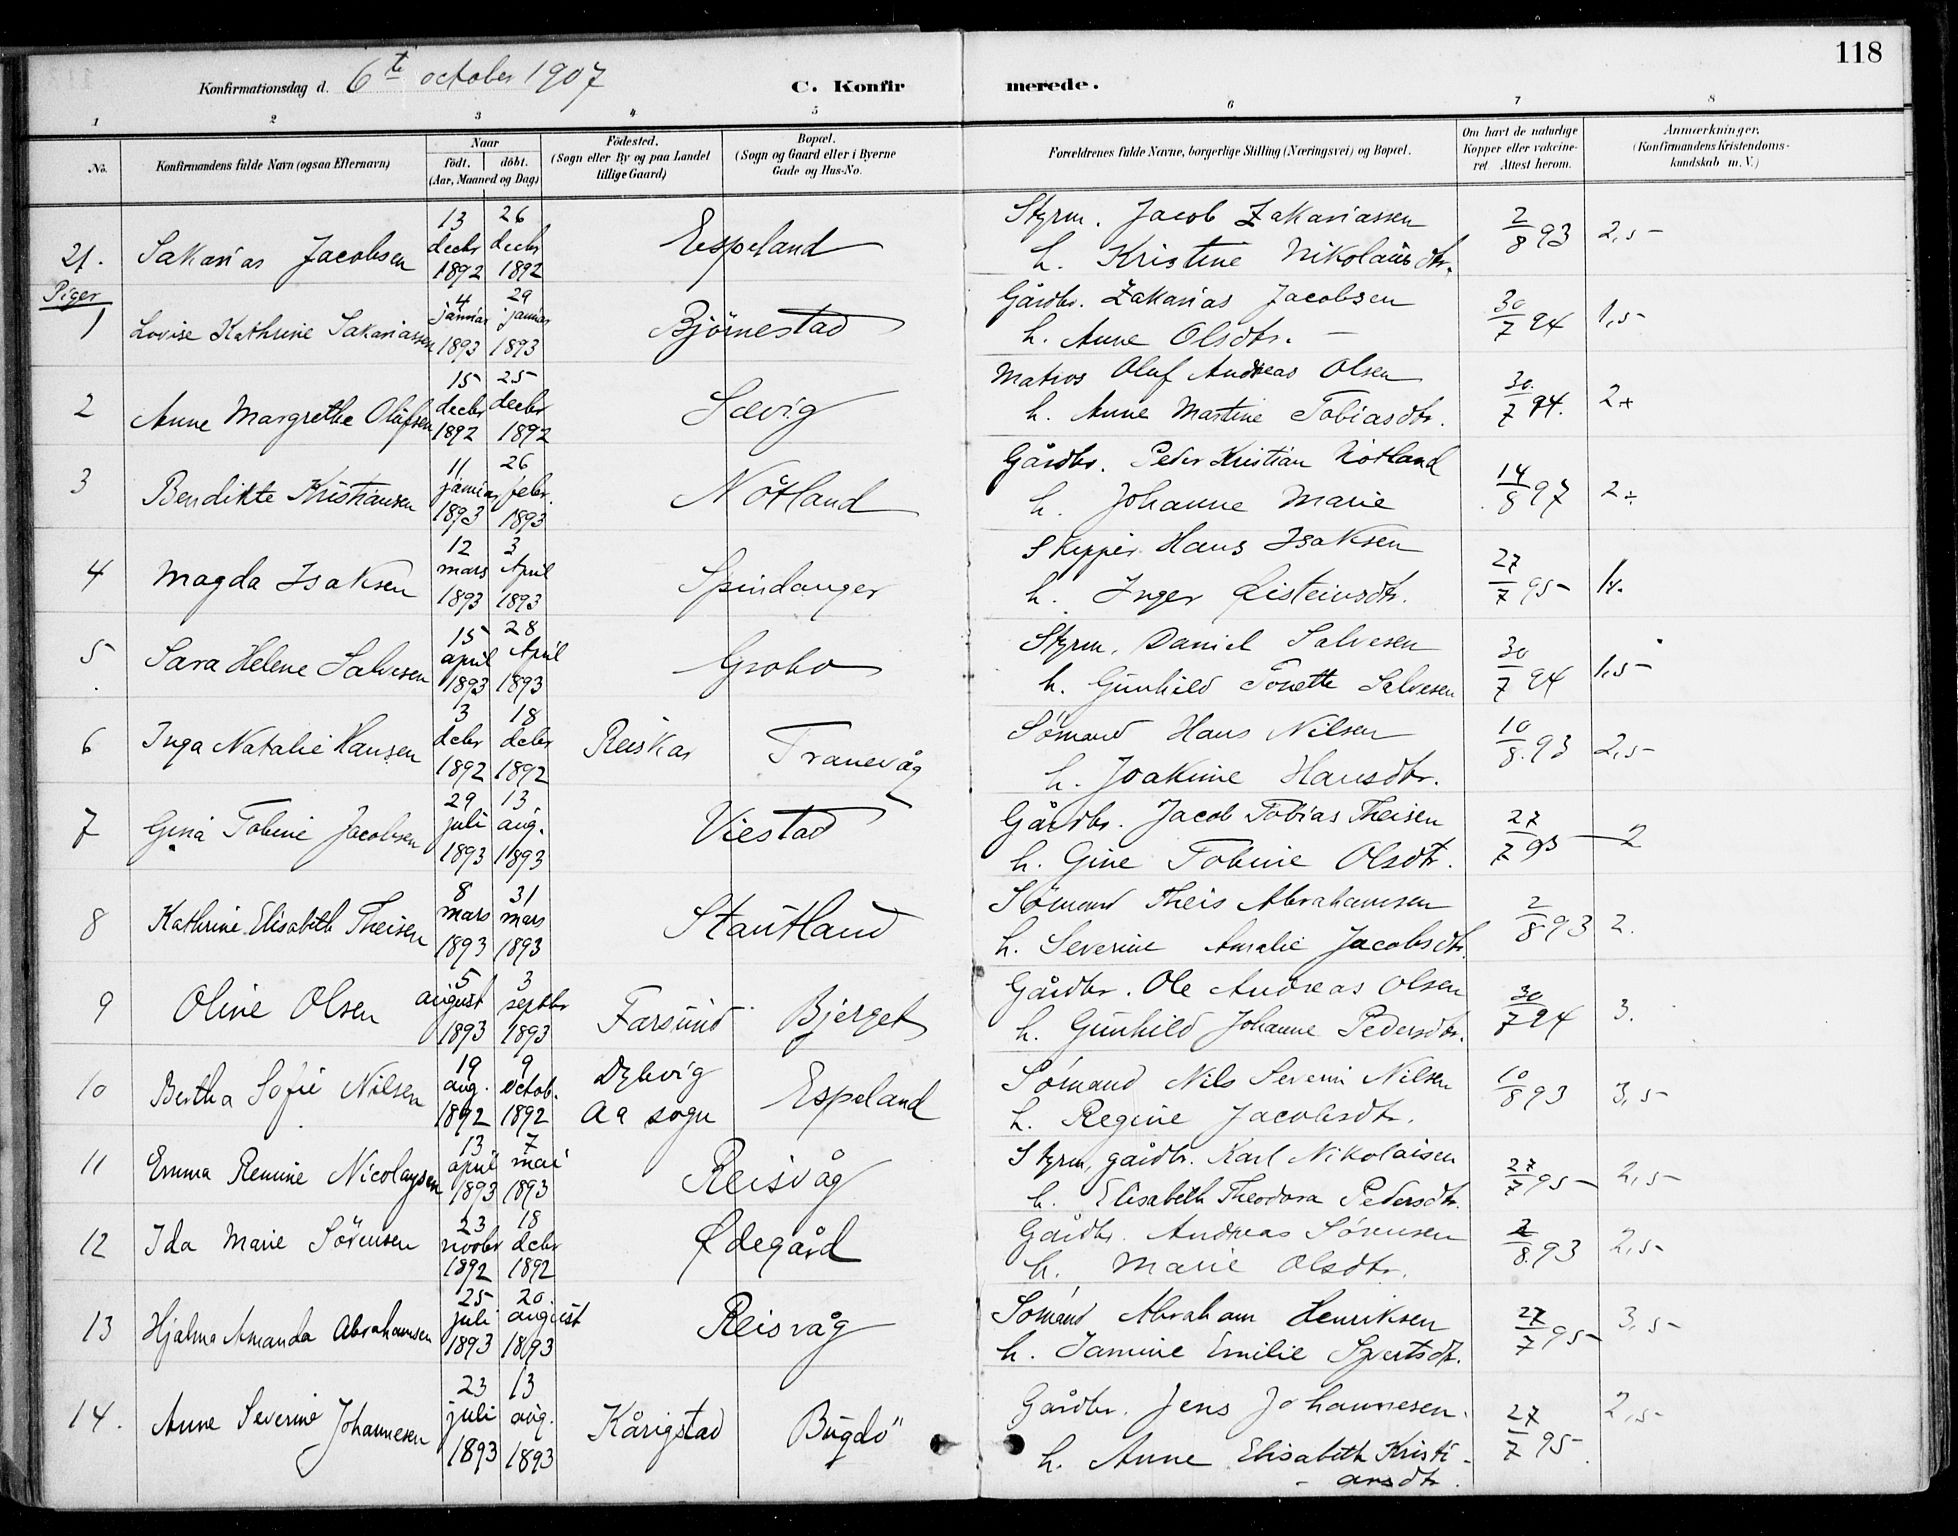 118
Konfirmationsdag d. 6te october 1907
C. Konfirmerede.
1 2 3 4 5 6 7 8
No. Konfirmandens fulde Navn (ogsaa Efternavn) Naar født. døbt. (Aar, Maaned og Dag) Fødested. (Sogn eller By og paa Landet tillige Gaard) Bopæl. (Sogn og Gaard eller i Byerne Gade og Hus-No. Forældrenes fulde Navne, borgerlige Stilling (Næringsvei) og Bopæl. Om havt de naturlige Kopper eller vakcineret Attest herom. Anmærkninger. (Konfirmandens Kristendomskundskab m. V.)
21. Sakarias Jacobsen 13 decbr 1892 26 decbr 1892 Espeland Styrm. Jacob Zakariassen h. Kristine Nikolaisdtr. 2/8 93 2,5
Piger
1 Lovise Kathrine Sakariassen 4 januar 1893 29 januar 1893 Björnestad Gårdbr. Zakarias Jacobsen h. Anne Olsdtr. 30/7 94 1,5
2 Anne Margrethe Olufsen 15 decbr 1892 25 decbr 1892 Sævig Matros Oluf Andreas Olsen h. Anne Martine Tobiasdtr. 30/7 94. 2+
3 Bendikte Kristiansen 11 januar 1893 26 febr. 1893 Nötland Gårdbr. Peder Kristian Nötland h. Johanne Marie 14/8 97 2÷
4 Magda Isaksen 12 mars 1893 3 April 1893 Spindanger Skipper Hans Isaksen h. Inger Eisteinsdtr. 27/7 95
5 Sara Helene Salvesen 15 april 1893 28 April 1893 Grobo Styrm. Daniel Salvesen h. Gunhild Tonette Salvesen 30/7 94 1,5
6 Inga Natalie Hansen 3 debr 1892 18 debr 1892 Reiskar Tranevåg Sømand Hans Nilsen h. Joakime Hansdtr. 10/8.93 2,5
7 Gina Tobine Jacobsen 29 juli 1893 13 aug. 1893 Viestad Gårdbr. Jacob Tobias Theisen h. Gine Tobine Olsdtr. 27/7 95 2
8 Kathrine Elisabeth Theisen 8 mars 1893 31 mars 1893 Stautland Sømand Theis Abrahamsen h. Severine Amalie Jacobsdtr. 2/8 93 2.
9 Oline Olsen 5 august 1893 3 septbr 1893 Farsund Bjerget Gårdbr. Ole Andreas Olsen h. Gunhild Johanne Pedersdtr. 30/7 94 3.
10 Bertha Sofie Nilsen 19 aug. 1892 9 octob. 1892 Dybvig Aa sogn Espeland Sømand Nils Severin Nilsen h. Regine Jacobsdtr. 10/8 93 3,5
11 Emma Remine Nicolaysen 13 april 1893 7 mai 1893 Reisvåg Styrm, gårdbr. Karl Nikolaisen h. Elisabeth Theodora Pedersdtr. 27/7 95 2,5
12 Ida Marie Sörensen 23 novbr 1892 18 debr 1892 Ødegård Gårdbr. Andreas Sørensen h. Marie Olsdtr. 2/8.93 2,5
13 Hjalma Amanda Abrahamsen 25 juli 1893 20. august 1893 Reisvåg Sømand Abraham Henriksen h. Jamine Emilie Syvertsdtr. 27/7 95 3,5
14. Anne Severine Johannesen 23 juli 1893 13 aug. 1893 Kårigstad Bugdö Gårdbr. Jens Johannesen. h. Anne Elisabeth Kristi-
-ansdtr. 27/7 95 2,5